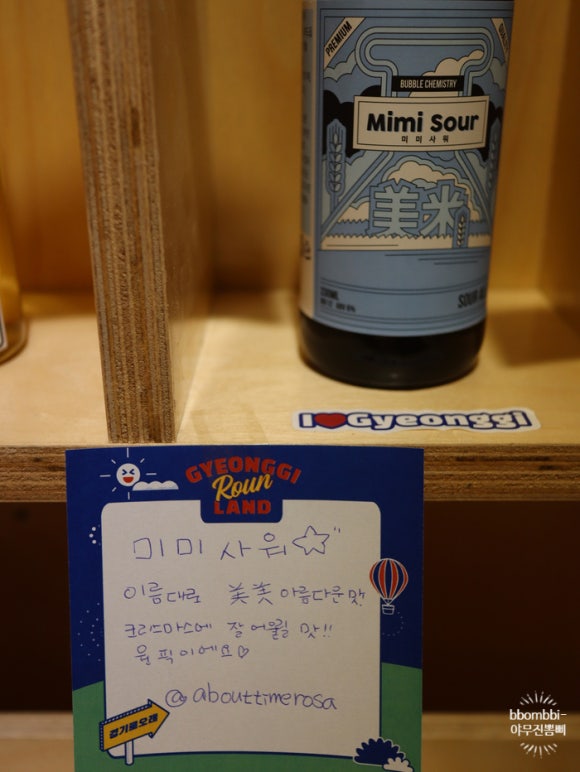 PREMIUM
BUBBLE CHEMISTRY
Mimi Sour
미미사워
美米
SOUR
I Gyeonggi
GYEONGGI
Roun
LAND
미미사워
이름대로 美美 아름다운맛
크리스마스에 잘어울릴 맛!!
원픽이에요♡
@abouttimerosa
경기로오래
bbombbi-
야무진뽐삐